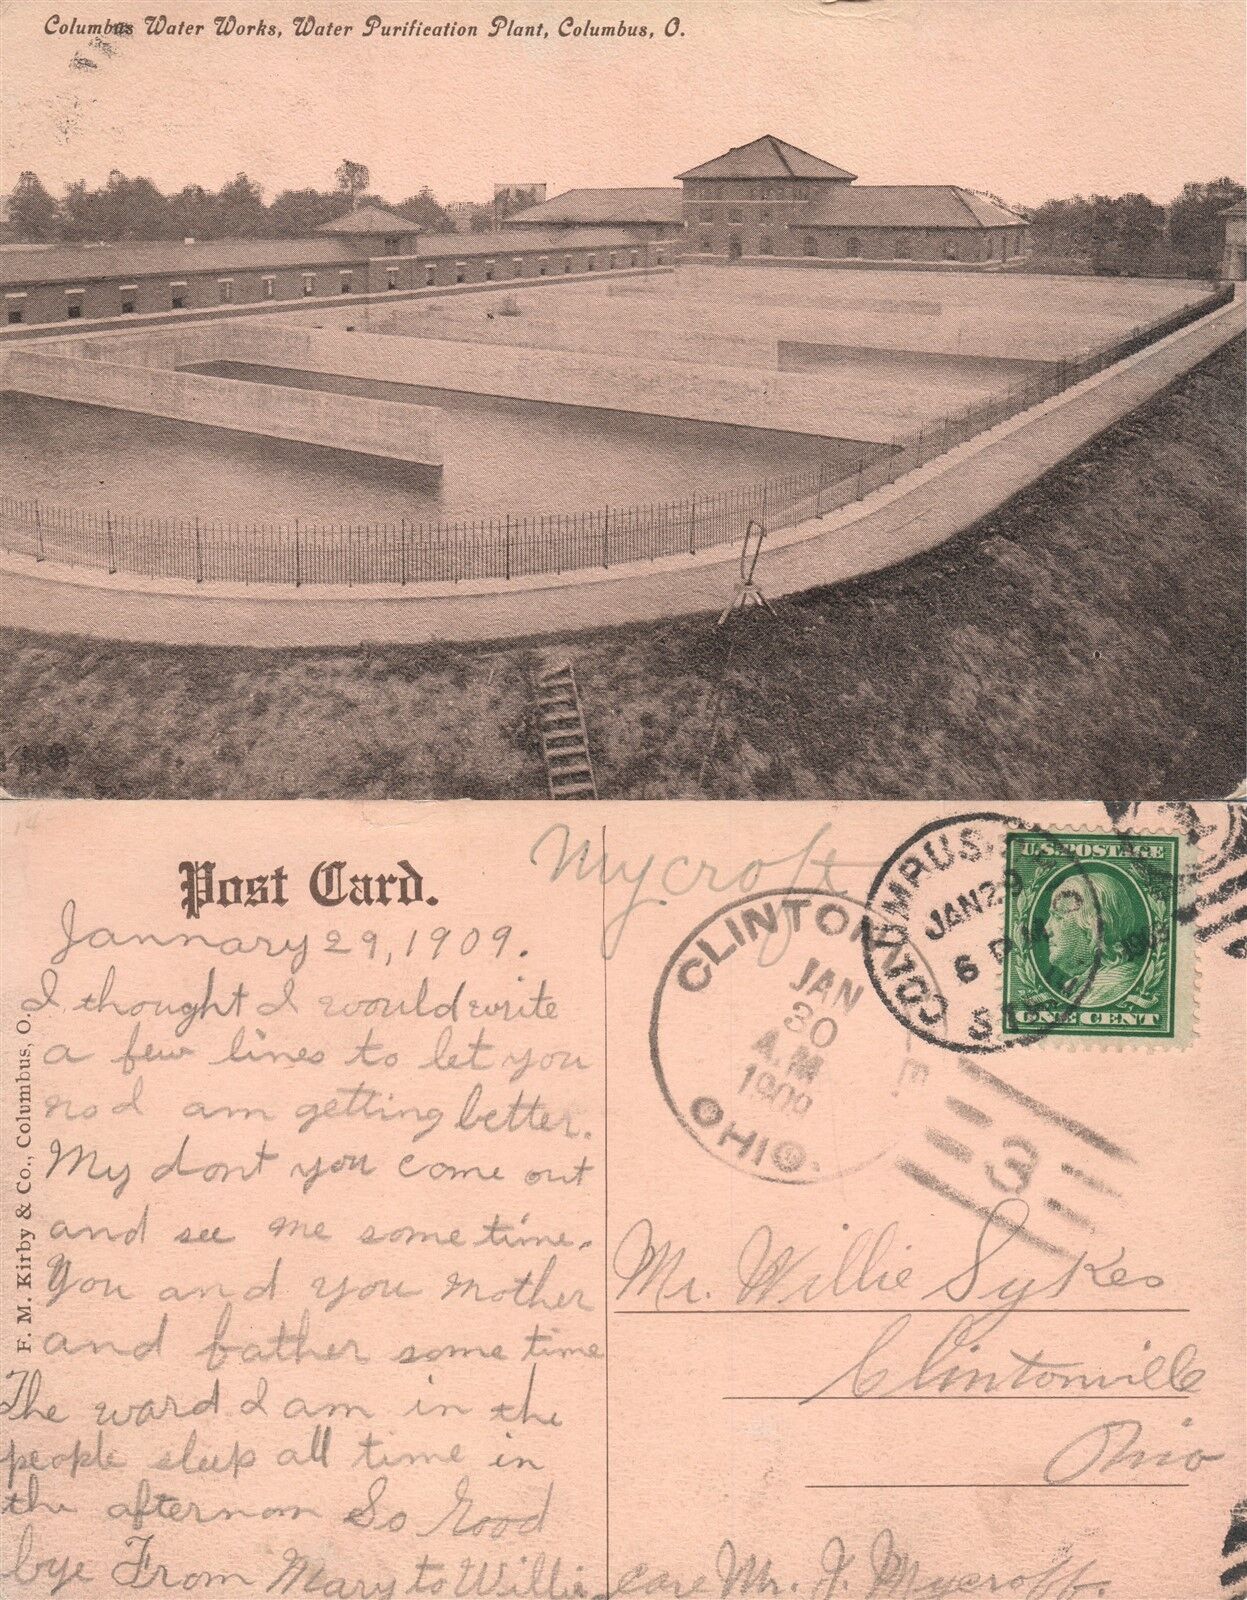 Columbus Water Works, Water Purification Plant, Columbus, O.
Mycroft
Post Card.
January 29, 1909.
I thought I would write
a few lines to let you
no I am getting better.
My dont you come out
and see me some time.
You and you Mother
and father some time
The ward I am in the
people sleep all time in
the afternoon So Good
bye From Mary to Willie
F. M. Kirby & Co., Columbus, O.
COLUMBUS
JAN 29
6 PM
STA
U.S. POSTAGE
ONE CENT
CLINTON
JAN
30
A.M
1909
OHIO.
3
Mr. Willie Sykes
Clintonville
Ohio
care Mr. J. Mycroft.